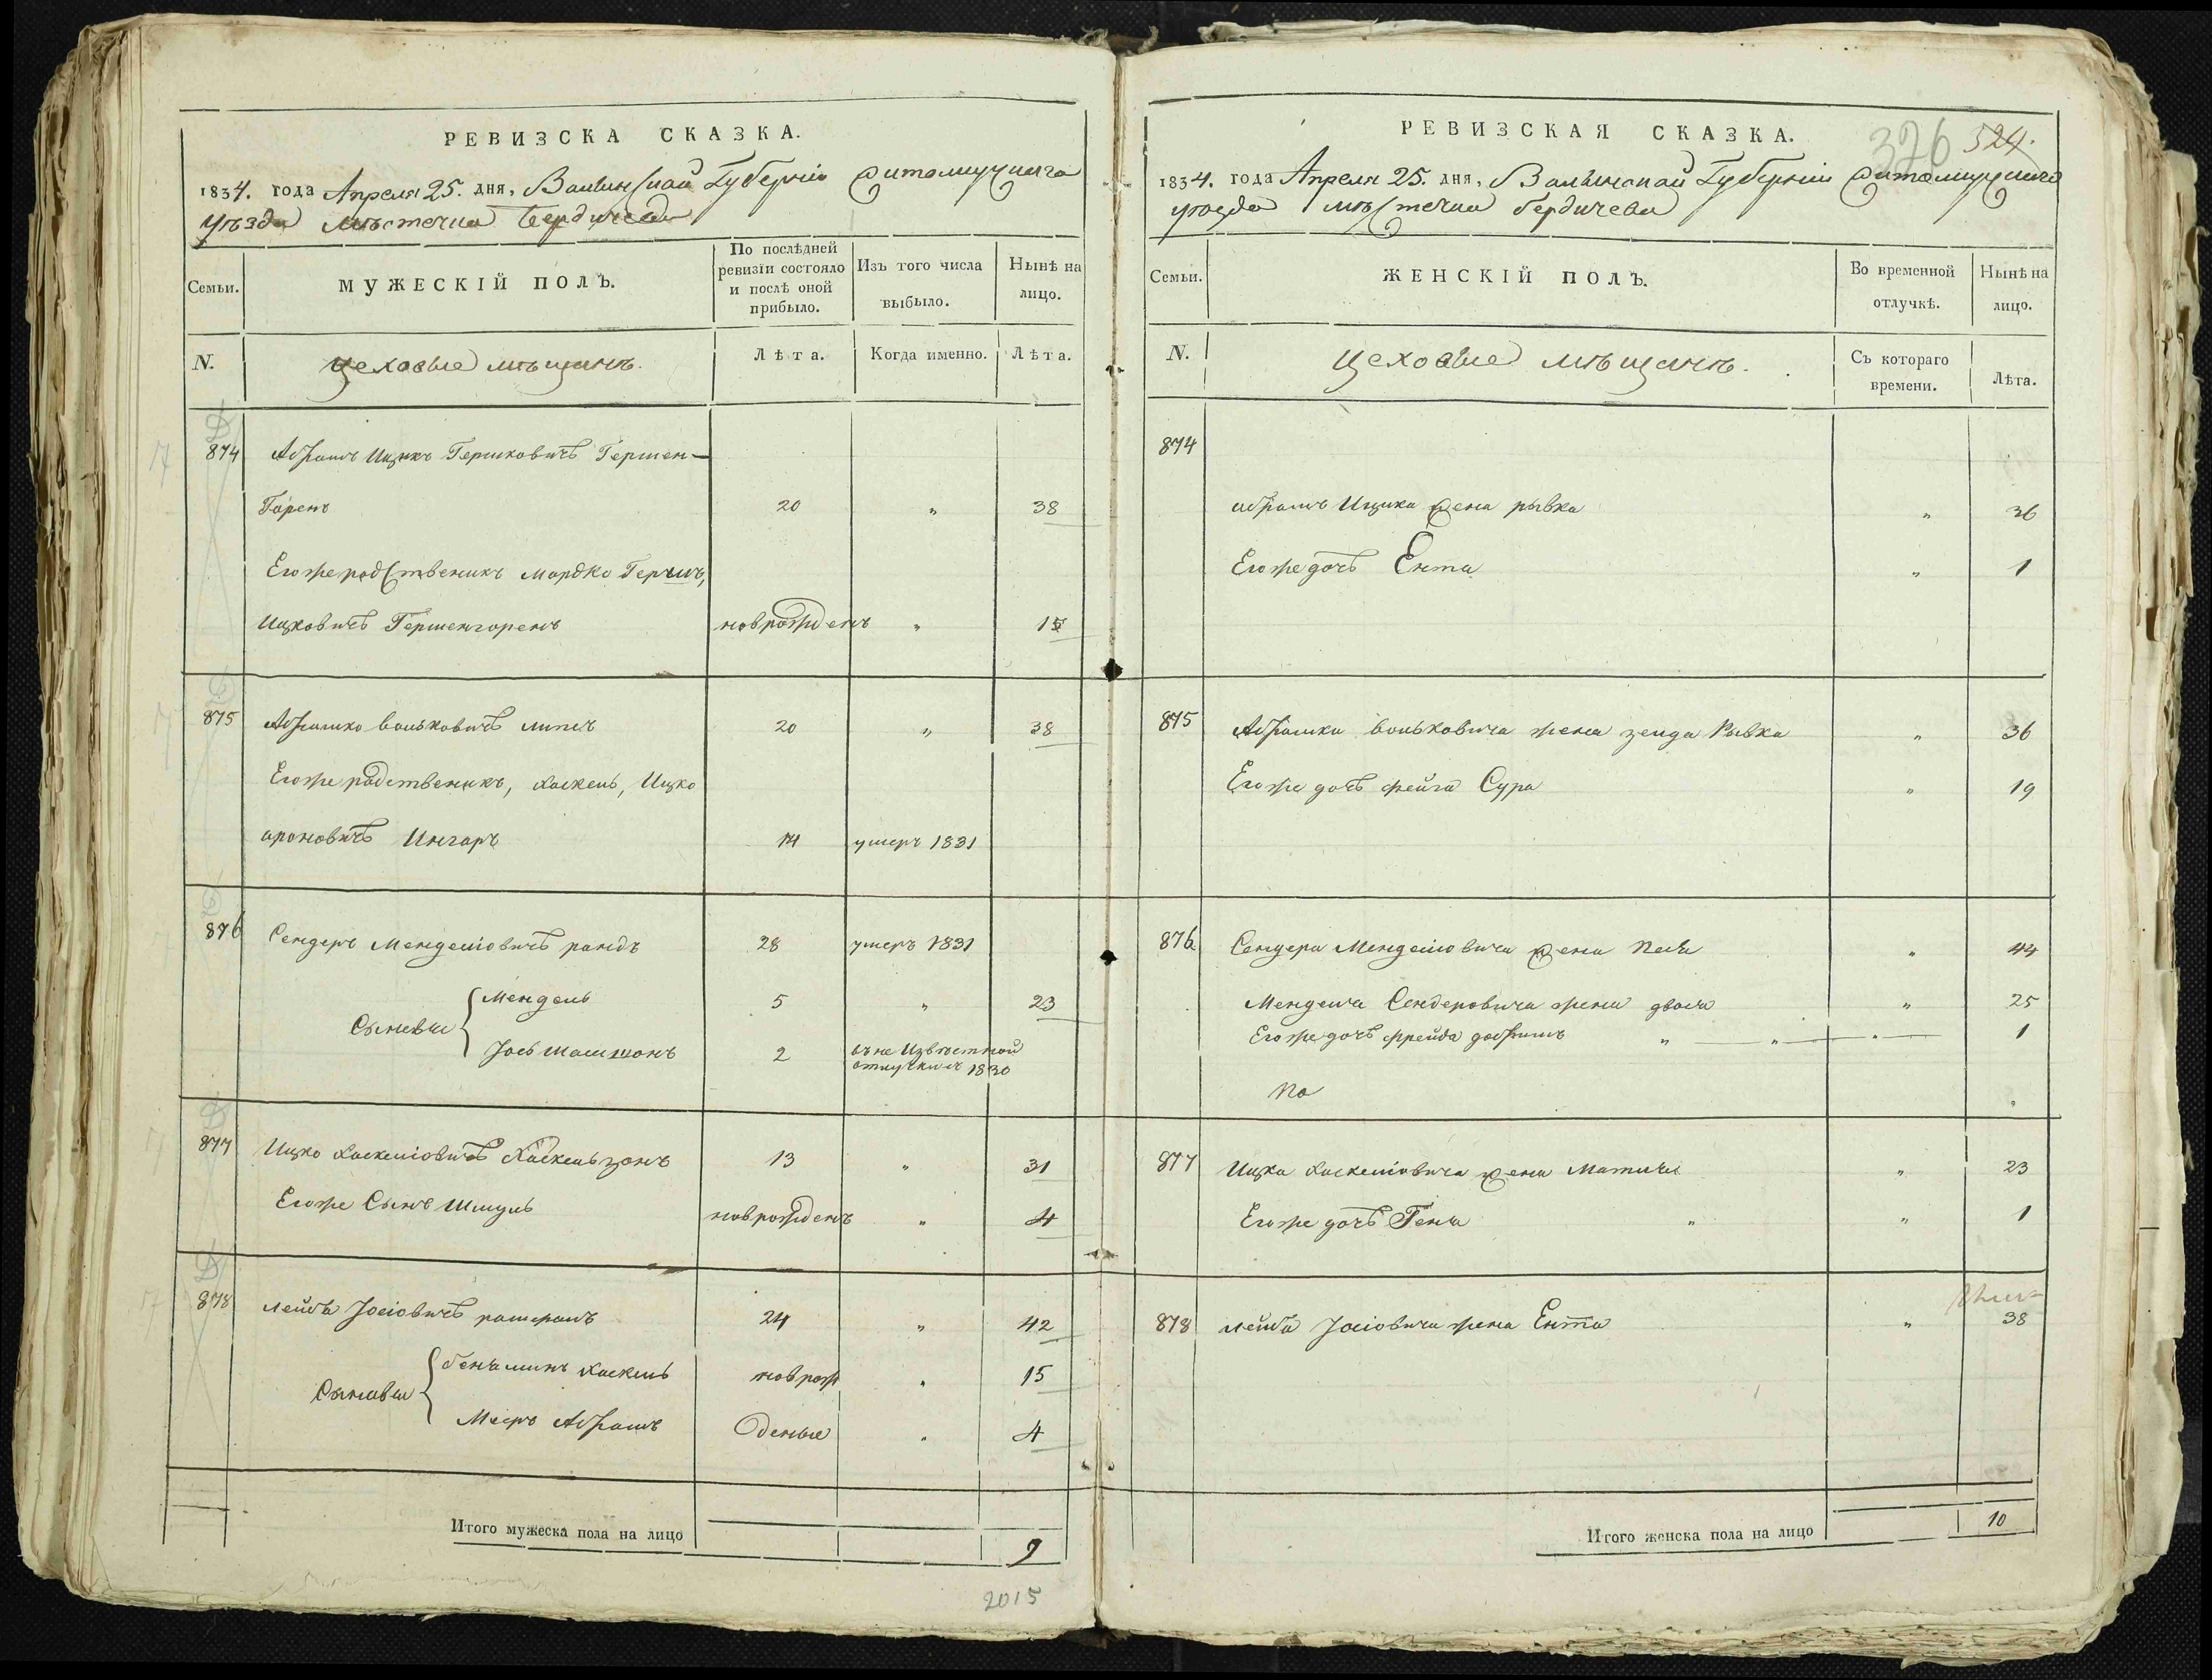 РЕВИЗСКА СКАЗКА.
1834. года Апреля 25. дня, Волынской Губернiи Житомирскаго
уѣзда мѣстечка Бердичева
Семьи.
МУЖЕСКIЙ ПОЛЪ.
По послѣдней ревизiи состояло и послѣ оной прибыло.
Изъ того числа выбыло.
Нынѣ на лицо.
N.
Цеховые мѣщане.
Лѣта.
Когда именно.
Лѣта.
874 Абрамъ Ицикъ Гершковичъ Гершен-
Горенъ 20 " 38
Егоже родственикъ Мордко Гершъ,
Ицковичъ Гершенгоренъ новрожденъ " 15
875 Абрамко Вольковичъ 20 " 38
Егоже родственикъ, Хаскель, Ицко
ароновичъ Ингаръ 14 умеръ 1831
876 Сендеръ Менделiовичъ рандъ 28 умеръ 1831
Сыновья
Мендель 5 " 23
Iось 2 въ не Извѣстной
отлучки съ 1830
877 Ицко Хаскелiовичъ Хаскельзонъ 13 " 31
Егоже Сынъ Шмуль новрожденъ " 4
878 лейба Iосiовичъ 24 " 42
Сыновья
бенъяминъ Хаскель новрож " 15
Меиръ Абрамъ Деные " 4
Итого мужеска пола на лицо 9
2015
РЕВИЗСКАЯ СКАЗКА.
326 524.
1834. года Апреля 25. дня, Волынской Губернiи Житомирскаго
уѣзда мѣстечка Бердичева
Семьи.
ЖЕНСКIЙ ПОЛЪ.
Во временной отлучкѣ.
Нынѣ на лицо.
N.
Цеховые мѣщане.
Съ котораго времени.
Лѣта.
874
абрамъ Ицика жена рывка " 36
Егоже дочъ Ента " 1
875 Абрамка Вольковича жена зелда Рывка " 36
Егоже дочъ фейга Сура " 19
876 Сендера Менделiовича жена Песя " 44
Менделя Сендеровича жена двося " 25
Егоже дочъ фрейда " " " 1
"
877 Ицка Хаскелiовича жена Матля " 23
Егоже дочъ Геня " " 1
878 лейба Iосiовича жена Ента " 38
Итого женска пола на лицо 10